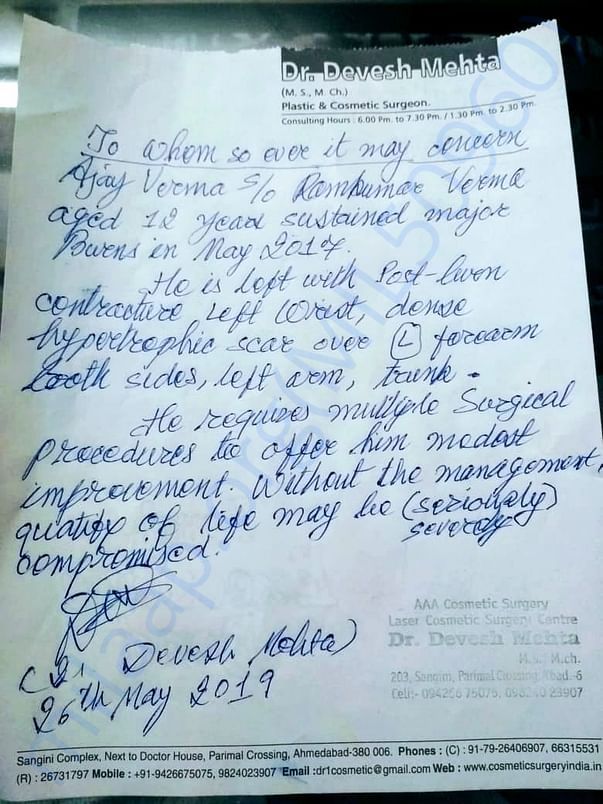 Dr. Devesh Mehta
(M. S., M. Ch.)
Plastic & Cosmetic Surgeon.
Consulting Hours : 6.00 Pm. to 7.30 Pm. / 1.30 Pm. to 2.30 Pm.
To whom so ever it may concern
Ajay Verma S/o Ramkumar Verma
aged 12 years sustained major
Burns in May 2017.
He is left with Post-burn
contracture, left Wrist, dense
hypertrophic scar over (L) forearm
both sides, left arm, trunk.
He requires multiple Surgical
Procedures to offer him modest
improvement. Without the management,
quality of life may be (seriously)
severely
compromised.
(Dr Devesh Mehta)
26th May 2019
AAA Cosmetic Surgery
Laser Cosmetic Surgery Centre
Dr. Devesh Mehta
M.S., M.ch.
203, Sangini, Parimal Crossing, A'bad.-6
Cell:- 75075, 23907
Sangini Complex, Next to Doctor House, Parimal Crossing, Ahmedabad-380 006. Phones : (C) : 91-79-26406907, 66315531
(R) : 26731797 Mobile : +91-9426675075, 9824023907 Email :dr1cosmetic@gmail.com Web : www.cosmeticsurgeryindia.in